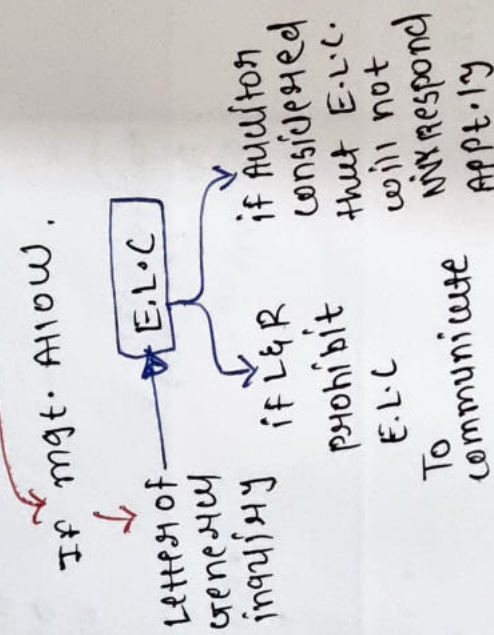 If mgt. Allow.
Letter of
General
inquiry
E.L.C
if L&R
prohibit
E.L.C
To
communicate
if Auditor
considered
that E.L.C.
will not
respond
Appt.ly